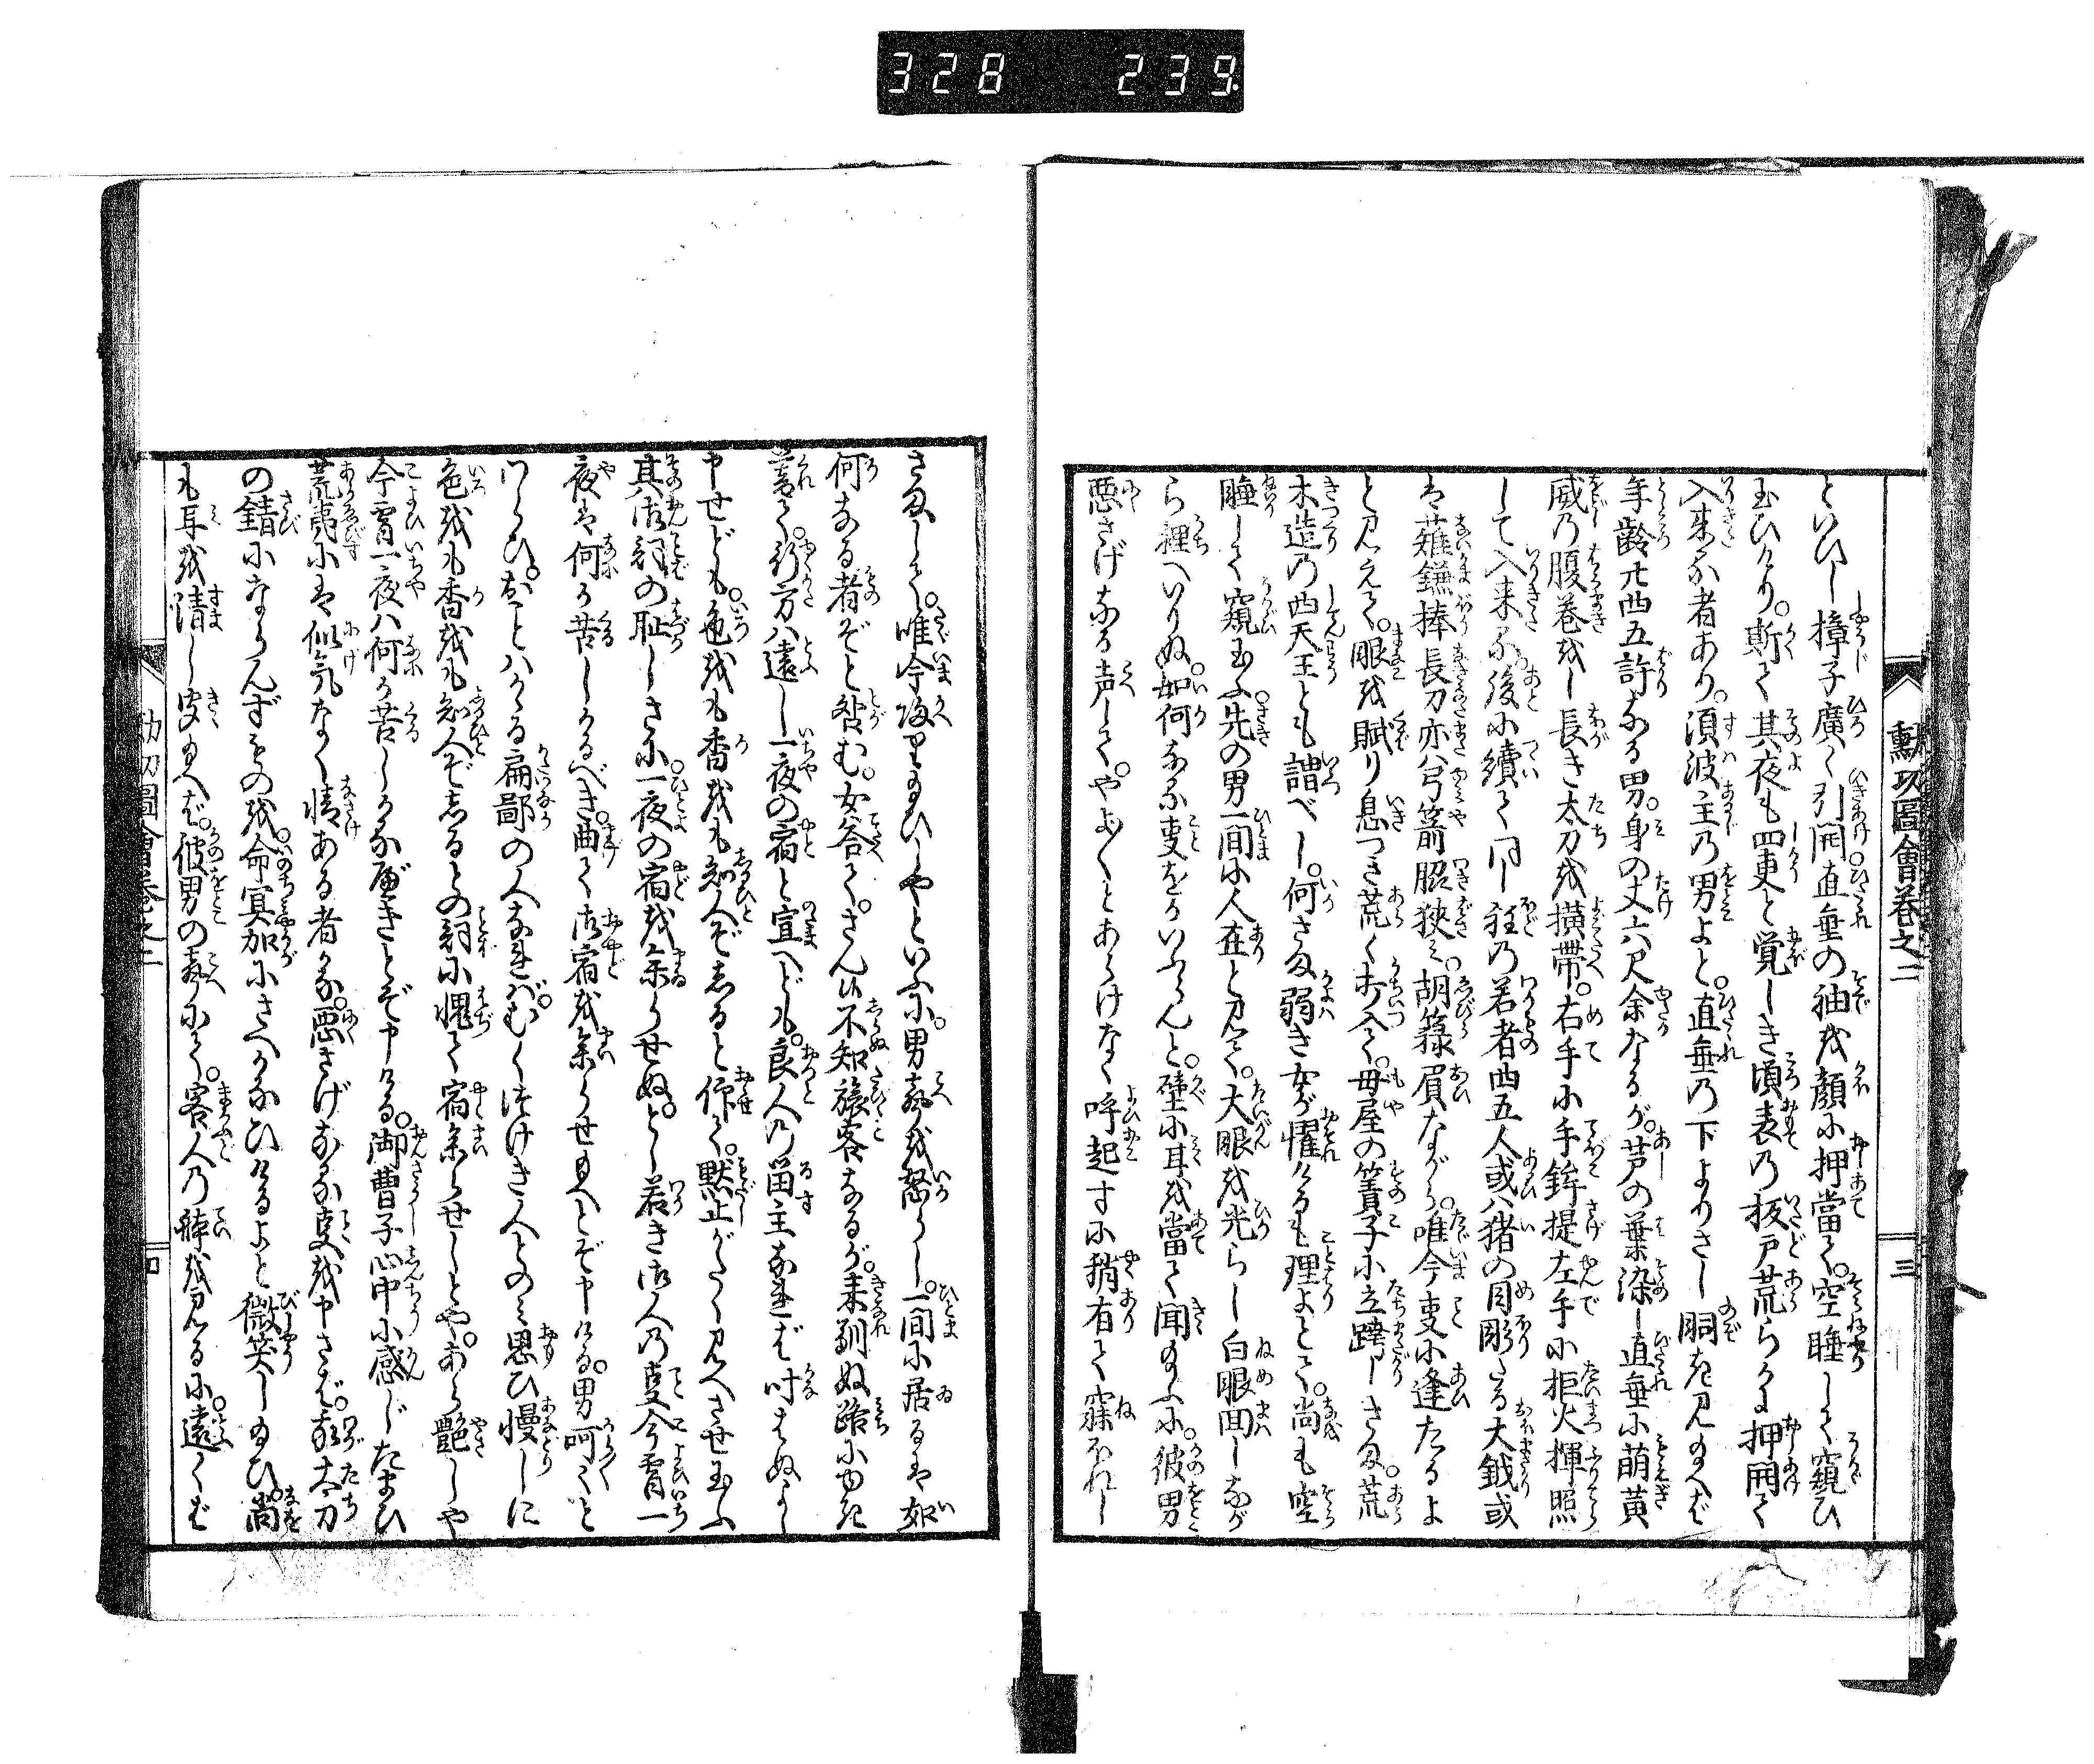 328 239
勲功圖會巻之二
三
といひし障子廣く引開直垂の袖を顔に押當て。空睡して窺ひ
玉ひけり。斯て其夜も四更と覚しき頃表の板戸荒らかに押開て
入来る者あり。須波主の男よと。直垂の下よりさし覘き見玉へば
年齢廿四五許なる男。身の丈六尺余なるが。芦の葉染し直垂に萌黄
威の腹巻をし長き太刀を横帯。右手に手鉾提左手に炬火揮照
して入来る。後に續て同じ程の若者四五人或ハ猪の目彫たる大鉞或
は薙鎌棒長刀亦ハ弓箭脇狭み。胡籙負ながら。唯今事に逢たるよ
と見えて。眼を賦り息つき荒く打入て。母屋の簀子に立跨しさま。荒
木造の四天王とも謂べし。何さま弱き女が懼けるも理よとて。尚も空
睡して窺玉ふ。先の男一間に人在と見て。大眼を光らし白眼回しなが
ら裡へいりぬ。如何なる事をかいふらんと。壁に耳を當て聞玉ふに。彼男
悪さげなる声して。やよ〳〵とあらけなく呼起すに稍有て寐ぶれし
さまして。唯今帰り玉ひしやといふに。男声を怒らし。一間に居るは如
何なる者ぞと咎む。女答て。さん候不知旅客なるが。来馴ぬ路にゆき
暮て。行方ハ遠し一夜の宿と宣へども。良人の留主なれば叶はぬよし
申せども。色をも香をも知人ぞしると仰て。黙止がたく見へさせ玉ふ
其御詞の恥しさに。一夜の宿を参らせぬ。よし若き御人の事今宵一
夜は何か苦しかるべき。曲て御宿を参らせ見へとぞ申ける。男呵〻と
わらひ。おことハかゝる扁鄙の人なれば。むくつけき人とのミ思ひ慢しに
色をも香をも知人ぞしるとの詞に愧て宿参らせしとや。あら艶しや
今宵一夜ハ何か苦しかるべきとぞ申ける。御曹子心中に感じたまひ
荒夷には似気なく情ある者かな。悪さげなる事を申さば。我太刀
の錆になさんずものを。命冥加にさへかなひけるよと微笑し玉ひ。尚
も耳を清し聞玉へば。彼男の声にて。客人の体を見るに。遠くば
功圖會巻之二
四